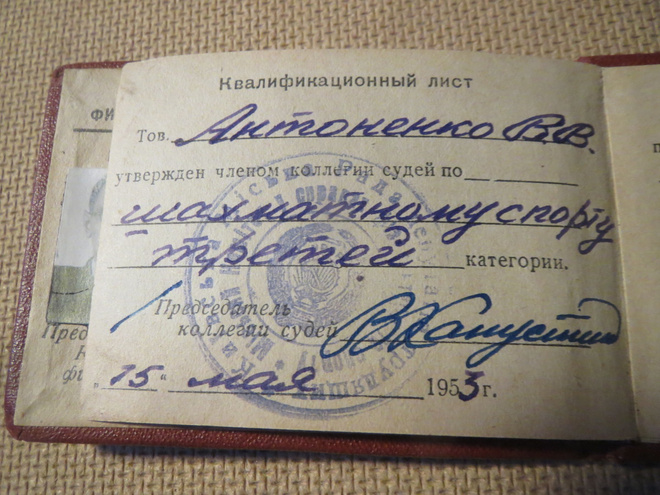 Квалификационный лист
Тов. Антоненко В.В.
утвержден членом коллегии судей по
шахматному спорту
третей категории.
Председатель
коллегии судей В Капустин
„15“ мая 1953 г.
ФИ
Пред
К
фи